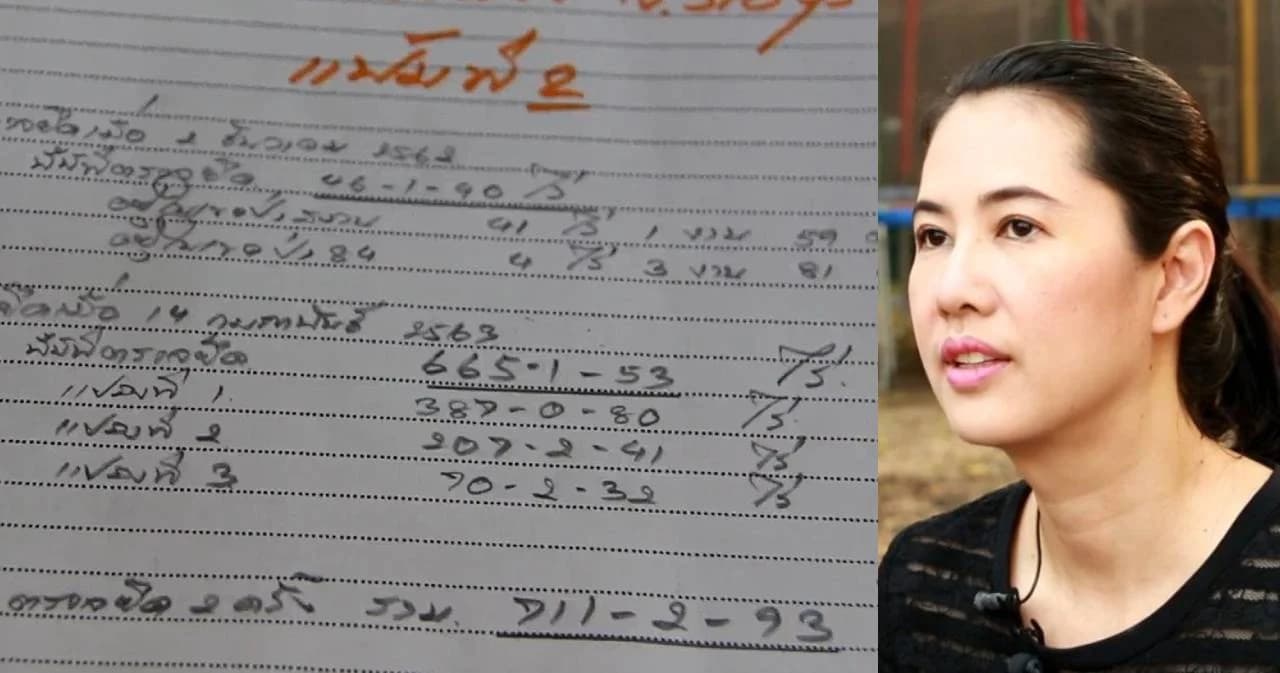 แฟ้มที่ 2
ตรวจยึดเมื่อ 2 ธันวาคม 2562
พื้นที่ตรวจยึด 46-1-40 ไร่
อยู่ในเขตป่าสงวน 41 ไร่ 1 งาน 59
อยู่ในเขตป่า 84 4 ไร่ 3 งาน 81
ยึดเมื่อ 14 กุมภาพันธ์ 2563
พื้นที่ตรวจยึด 665-1-53 ไร่
แปลงที่ 1. 387-0-80 ไร่
แปลงที่ 2 207-2-41 ไร่
แปลงที่ 3 70-2-32 ไร่
ตรวจยึด 2 ครั้ง รวม. 711-2-93